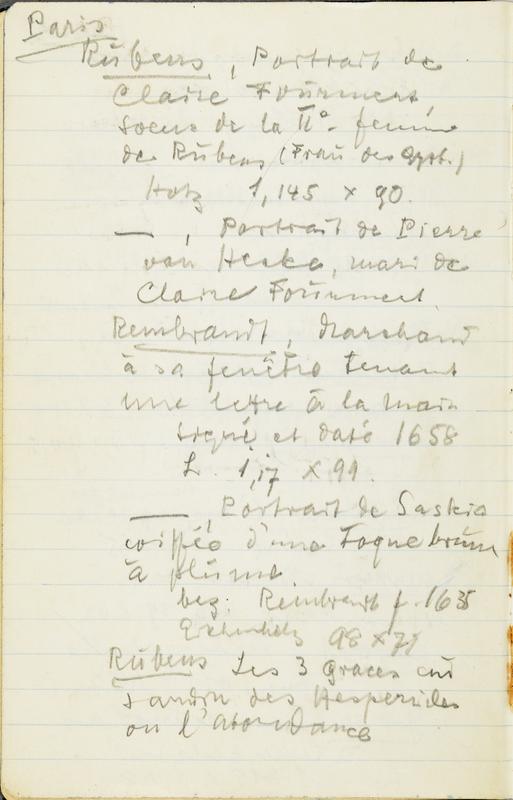 Paris
Rubens, Portrait de
Claire Fourment,
soeur de la IIe femme
de Rubens (Frau des
Holz 1,145 x 90.
—, Portrait de Pierre
van Hecke, mari de
Claire Fourment.
Rembrandt, Marchand
à sa fenêtre tenant
une lettre à la main
signé et daté 1658
L. 1,17 x 91.
— Portrait de Saskia
coiffée d'une Toque brune
à plume.
bez: Rembrandt f. 1635
Eichenholz 98 x 71
Rubens Les 3 Graces au
Jardin des Hesperides
ou l'abondance